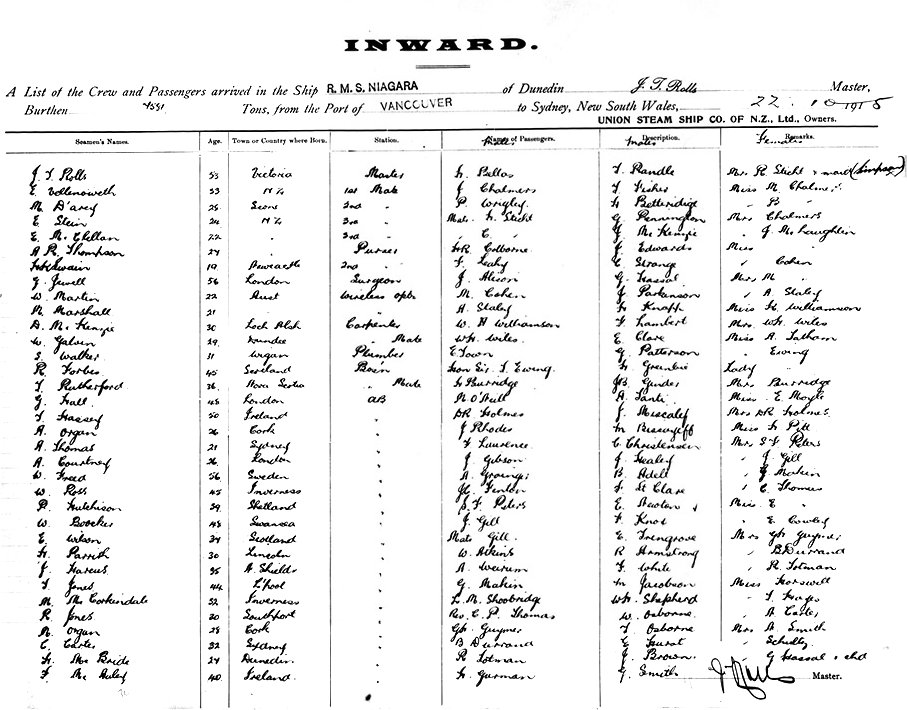 INWARD.
A List of the Crew and Passengers arrived in the Ship R.M.S. NIAGARA of Dunedin J. T. Rolls Master,
Burthen 7581 Tons, from the Port of VANCOUVER to Sydney, New South Wales, 22 . 10 1915
UNION STEAM SHIP CO. OF N.Z., Ltd., Owners.
Seamen's Names. Age. Town or Country where Born. Station. Names of Passengers. Description. Remarks.
Males Males Females
J. T. Rolls 53 Victoria Master H. Pallas T. Randle Mrs. R Sticht & maid (Simpson)
E. 53 N Z 1st Mate J Chalmers T Fisher Miss M. Chalmers
M D'arcy 25 2nd " P. Wrigley H Betteridge " B "
E. Stein 24 N Z 3rd " Mast. H. Sticht G Pennington Mrs Chalmers
E. Mc Clellan 22 . 3rd " " C. " J Mc Kenzie " J. Mc Loughlin
A R. Thompson 27 . Purser HR Colborne J Edwards Miss "
Swain 19 Newcastle 2nd " F. Leahy C Strange " Cohen
G. Jewell 56 London Surgeon J Alison G. Hassal Mrs. M "
W. Martin 22 Aust Wireless Optr M. Cohen J Parkinson " A. Staley
M Marshall 21 . A. Staley H Knapp Miss H. Williamson
D. Mc Kenzie 30 Loch Alsh Carpenter W. H Williamson F Lambert Mrs. WH. Wiles
W. Galvin 29 Dundee " Mate WH. Wiles E Clare Miss A. Latham
S. Walker 31 Wigan Plumber E Town G Patterson " Ewing
R Forbes 45 Scotland Bos'n Hon Sir T. Ewing H. Greenlie Lady "
T Rutherford 36 Nova Scotia " Mate H Burridge Mrs. Burridge
G. Hall 48 London AB N O'Neill A Miss E Moyle
T Hassey 50 Ireland " DR Holmes J. Mrs DR Holmes
A. Organ 26 Cork " J Rhodes Miss H Pitt
A. Thomas 21 Sydney " F Laurence C Christensen Mrs. S F Peters
A. Courtney 26 London " J Gibson J Healey " J. Gill
W. Freed 56 Sweden " A Grainger B. Adell " G Makin
W. Ross 45 Inverness " H. Fenton F St Clare " C Thomas
P. Hutchison 39 Shetland " S. F Peters E Miss. E "
W. Boocker 48 Swansea " J. Gill F Knox " E Cowley
E Wilson 34 Scotland " Mast Gill. E Trengrove Mrs GH Guyner
H. Parrish 30 Lincoln " W. Atkins R Armstrong " B Durrand
J. Harcus 35 N. Shields " A F. White " R. Totman
T. Jones 44 L'pool " G. Makin M Jacobson Miss Horswell
M. Mc Corkindale 32 Inverness " L. M. Shoobridge WH. Shepherd " T Hayes
R. Jones 30 Southport " Rev. C. P. Thomas W. Osborne " A Carter
M. Organ 28 Cork " GH Guyner T Osborne Mrs. A Smith
C. Carter 32 Sydney " B Durrand E Hurst " Schultz
H. Mc Bride 27 Dunedin " R Totman J Brown. " G Hassal & chd
F Mc Auley 40 Ireland. " H. Gurman G. Smith
Master.